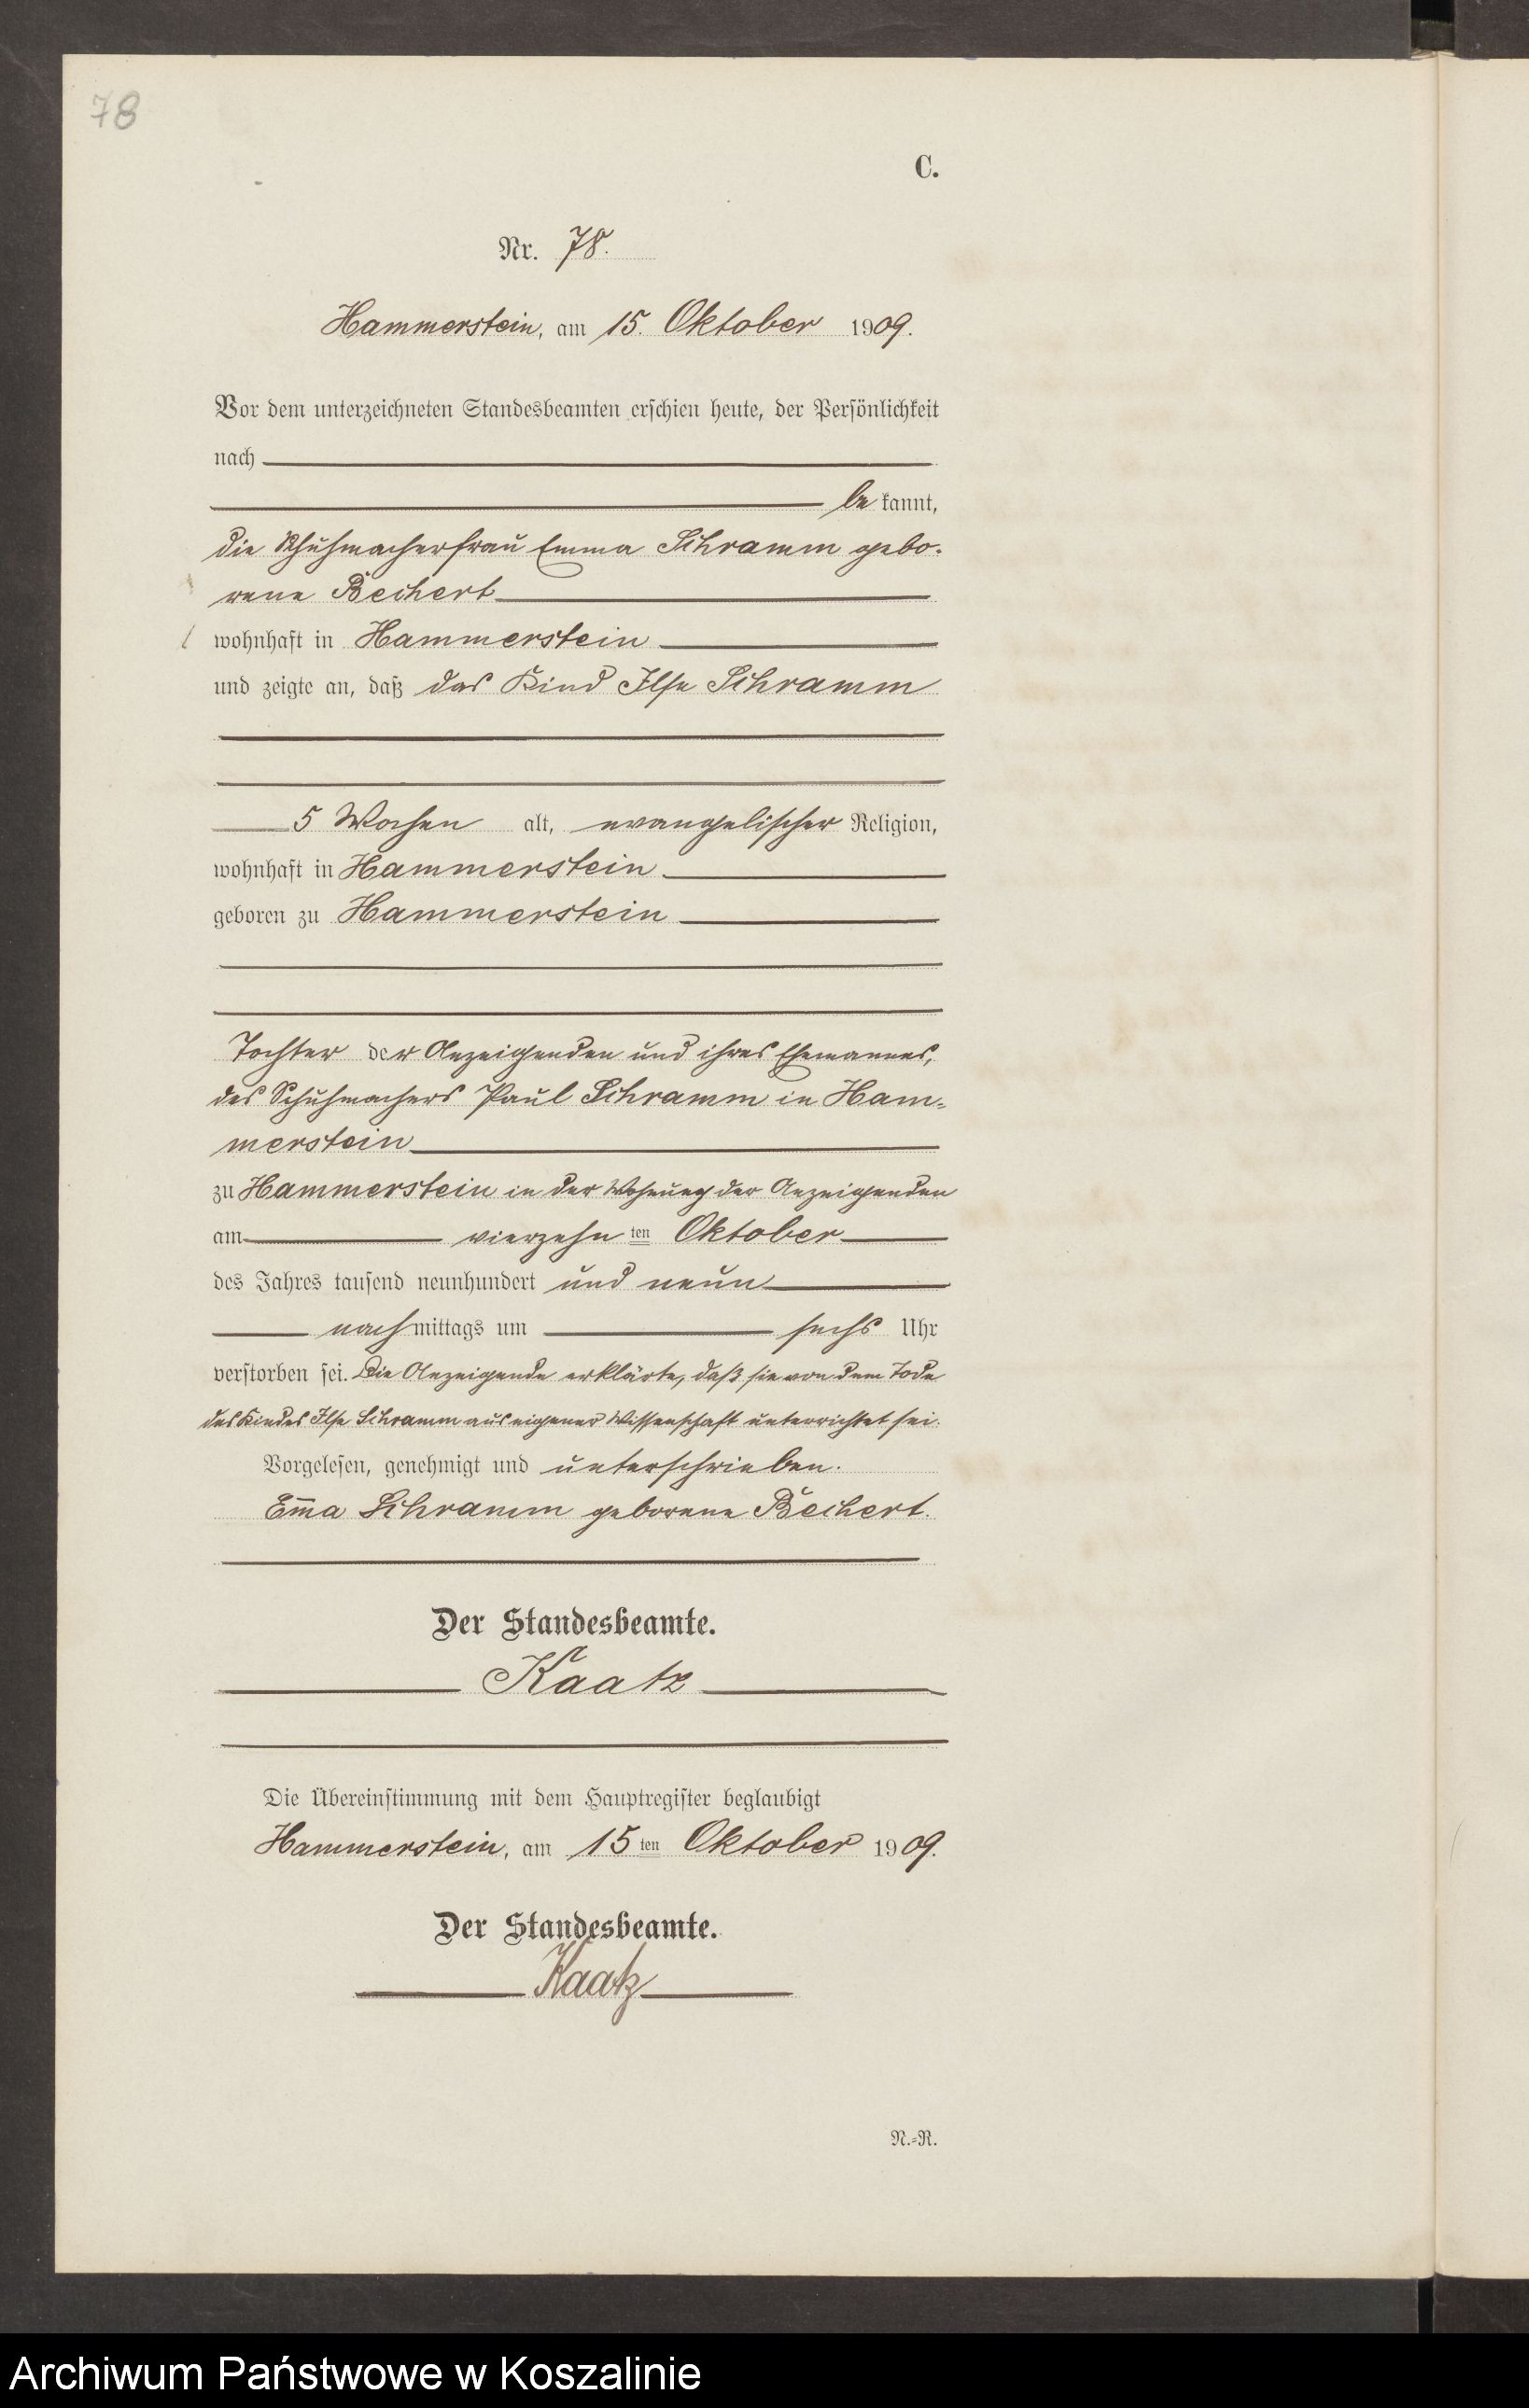 78
C.
Nr. 78.
Hammerstein, am 15. Oktober 1909.
Vor dem unterzeichneten Standesbeamten erschien heute, der Persönlichkeit
nach
bekannt,
die Schuhmacherfrau Emma Schramm gebo-
rene Bechert
wohnhaft in Hammerstein
und zeigte an, daß das Kind Ilse Schramm
5 Wochen alt, evangelischer Religion,
wohnhaft in Hammerstein
geboren zu Hammerstein
Tochter der Anzeigenden und ihres Ehemannes,
des Schuhmachers Paul Schramm in Ham-
merstein
zu Hammerstein in der Wohnung der Anzeigenden
am vierzehnten Oktober
des Jahres tausend neunhundert und neun
nachmittags um sechs Uhr
verstorben sei. Die Anzeigende erklärte, daß sie von dem Tode
des Kindes Ilse Schramm aus eigener Wissenschaft unterrichtet sei.
Vorgelesen, genehmigt und unterschrieben.
Em̄a Schramm geborene Bechert.
Der Standesbeamte.
Kaatz
Die Übereinstimmung mit dem Hauptregister beglaubigt
Hammerstein, am 15ten Oktober 1909.
Der Standesbeamte.
Kaatz
N.=R.
Archiwum Państwowe w Koszalinie